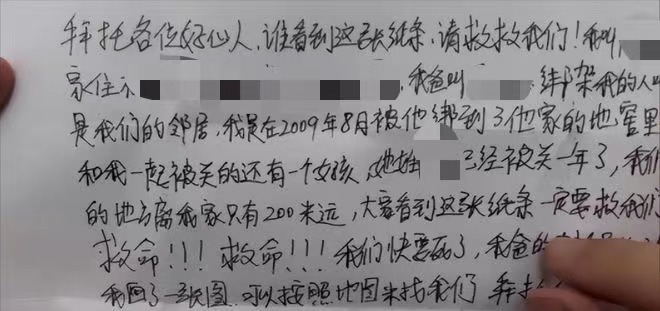 拜托各位好心人,谁看到这张纸条,请救救我们!我叫
家住 我爸叫 绑架我的人叫
是我们的邻居,我是在2009年8月被他绑到了他家的地窖里
和我一起被关的还有一个女孩,她姓 已经被关一年了,我们
的地方离我家只有200米远,大家看到这张纸条一定要救我们
救命!!!救命!!!我们快要死了,我爸的
我画了一张图,可以按照地图来找我们 拜托